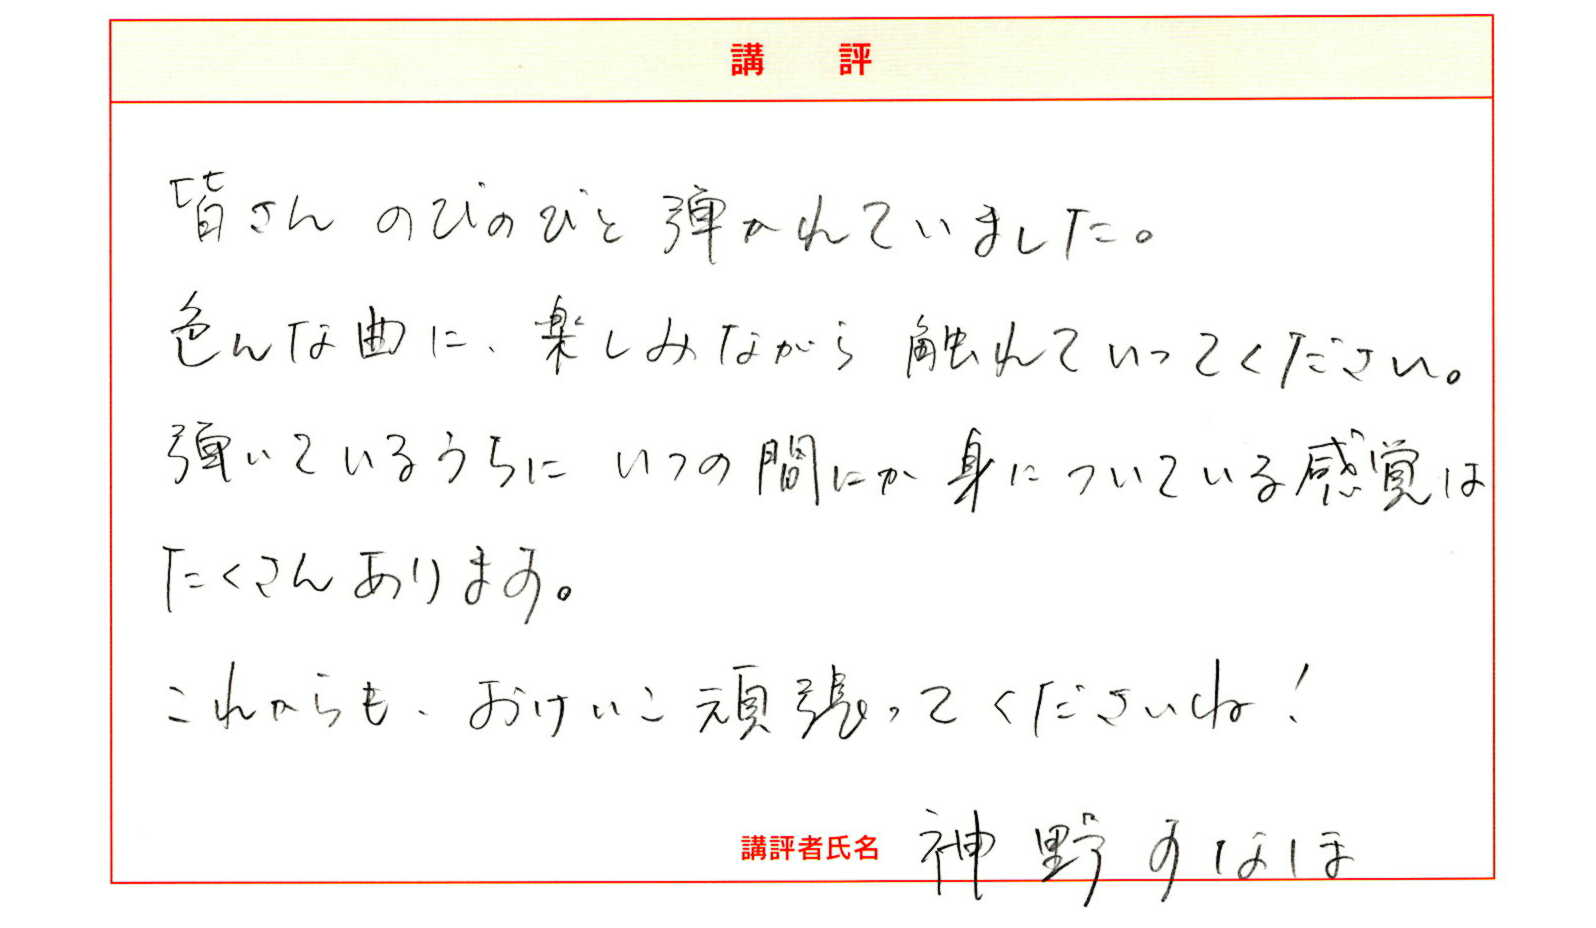 講 評
皆さん のびのびと 弾かれていました。
色んな曲に、楽しみながら 触れていってください。
弾いているうちに いつの間にか 身についている感覚は
たくさんあります。
これからも、おけいこ 頑張ってくださいね!
講評者氏名 神野 すなほ